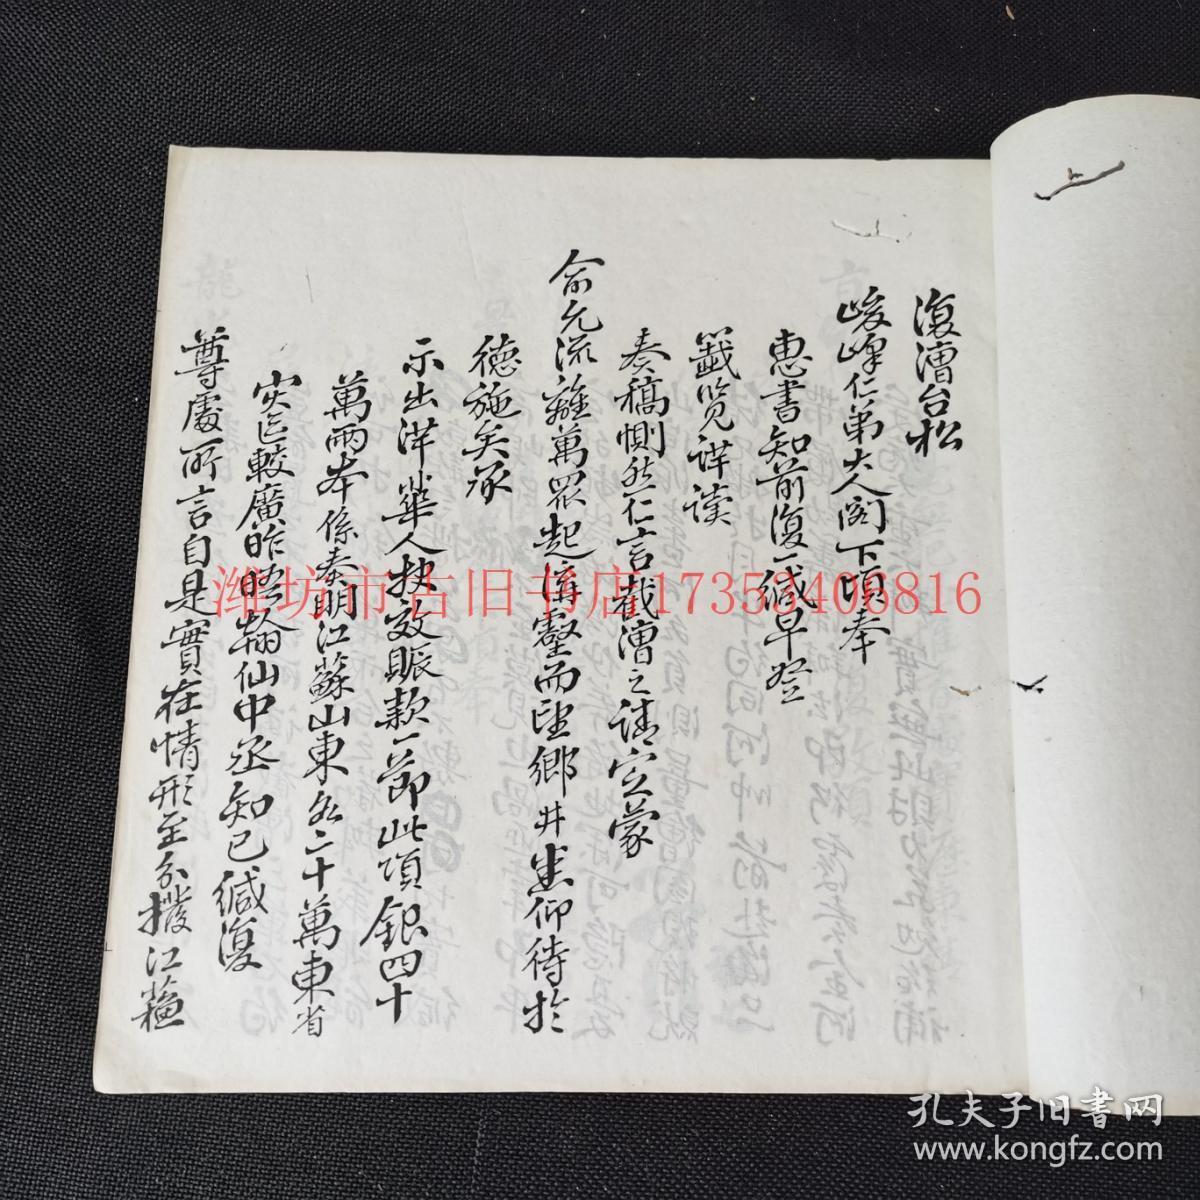 復漕台松
峻峰仁弟大人阁下頃奉
惠書知前復一緘早登
籖览详读
奏稿惻然仁言截漕之請定蒙
俞允流離萬眾起溝壑而田鄉井患仰待於
德施矣承
示出洋華人报效賑款一節此項銀四十
萬两本係奏明江蘇山東各二十萬東省
灾区較廣昨晤翰仙中丞知已緘復
尊處所言自是實在情形至分撥江蘓
潍坊市古旧书店17353406816
孔夫子旧书网
www.kongfz.com